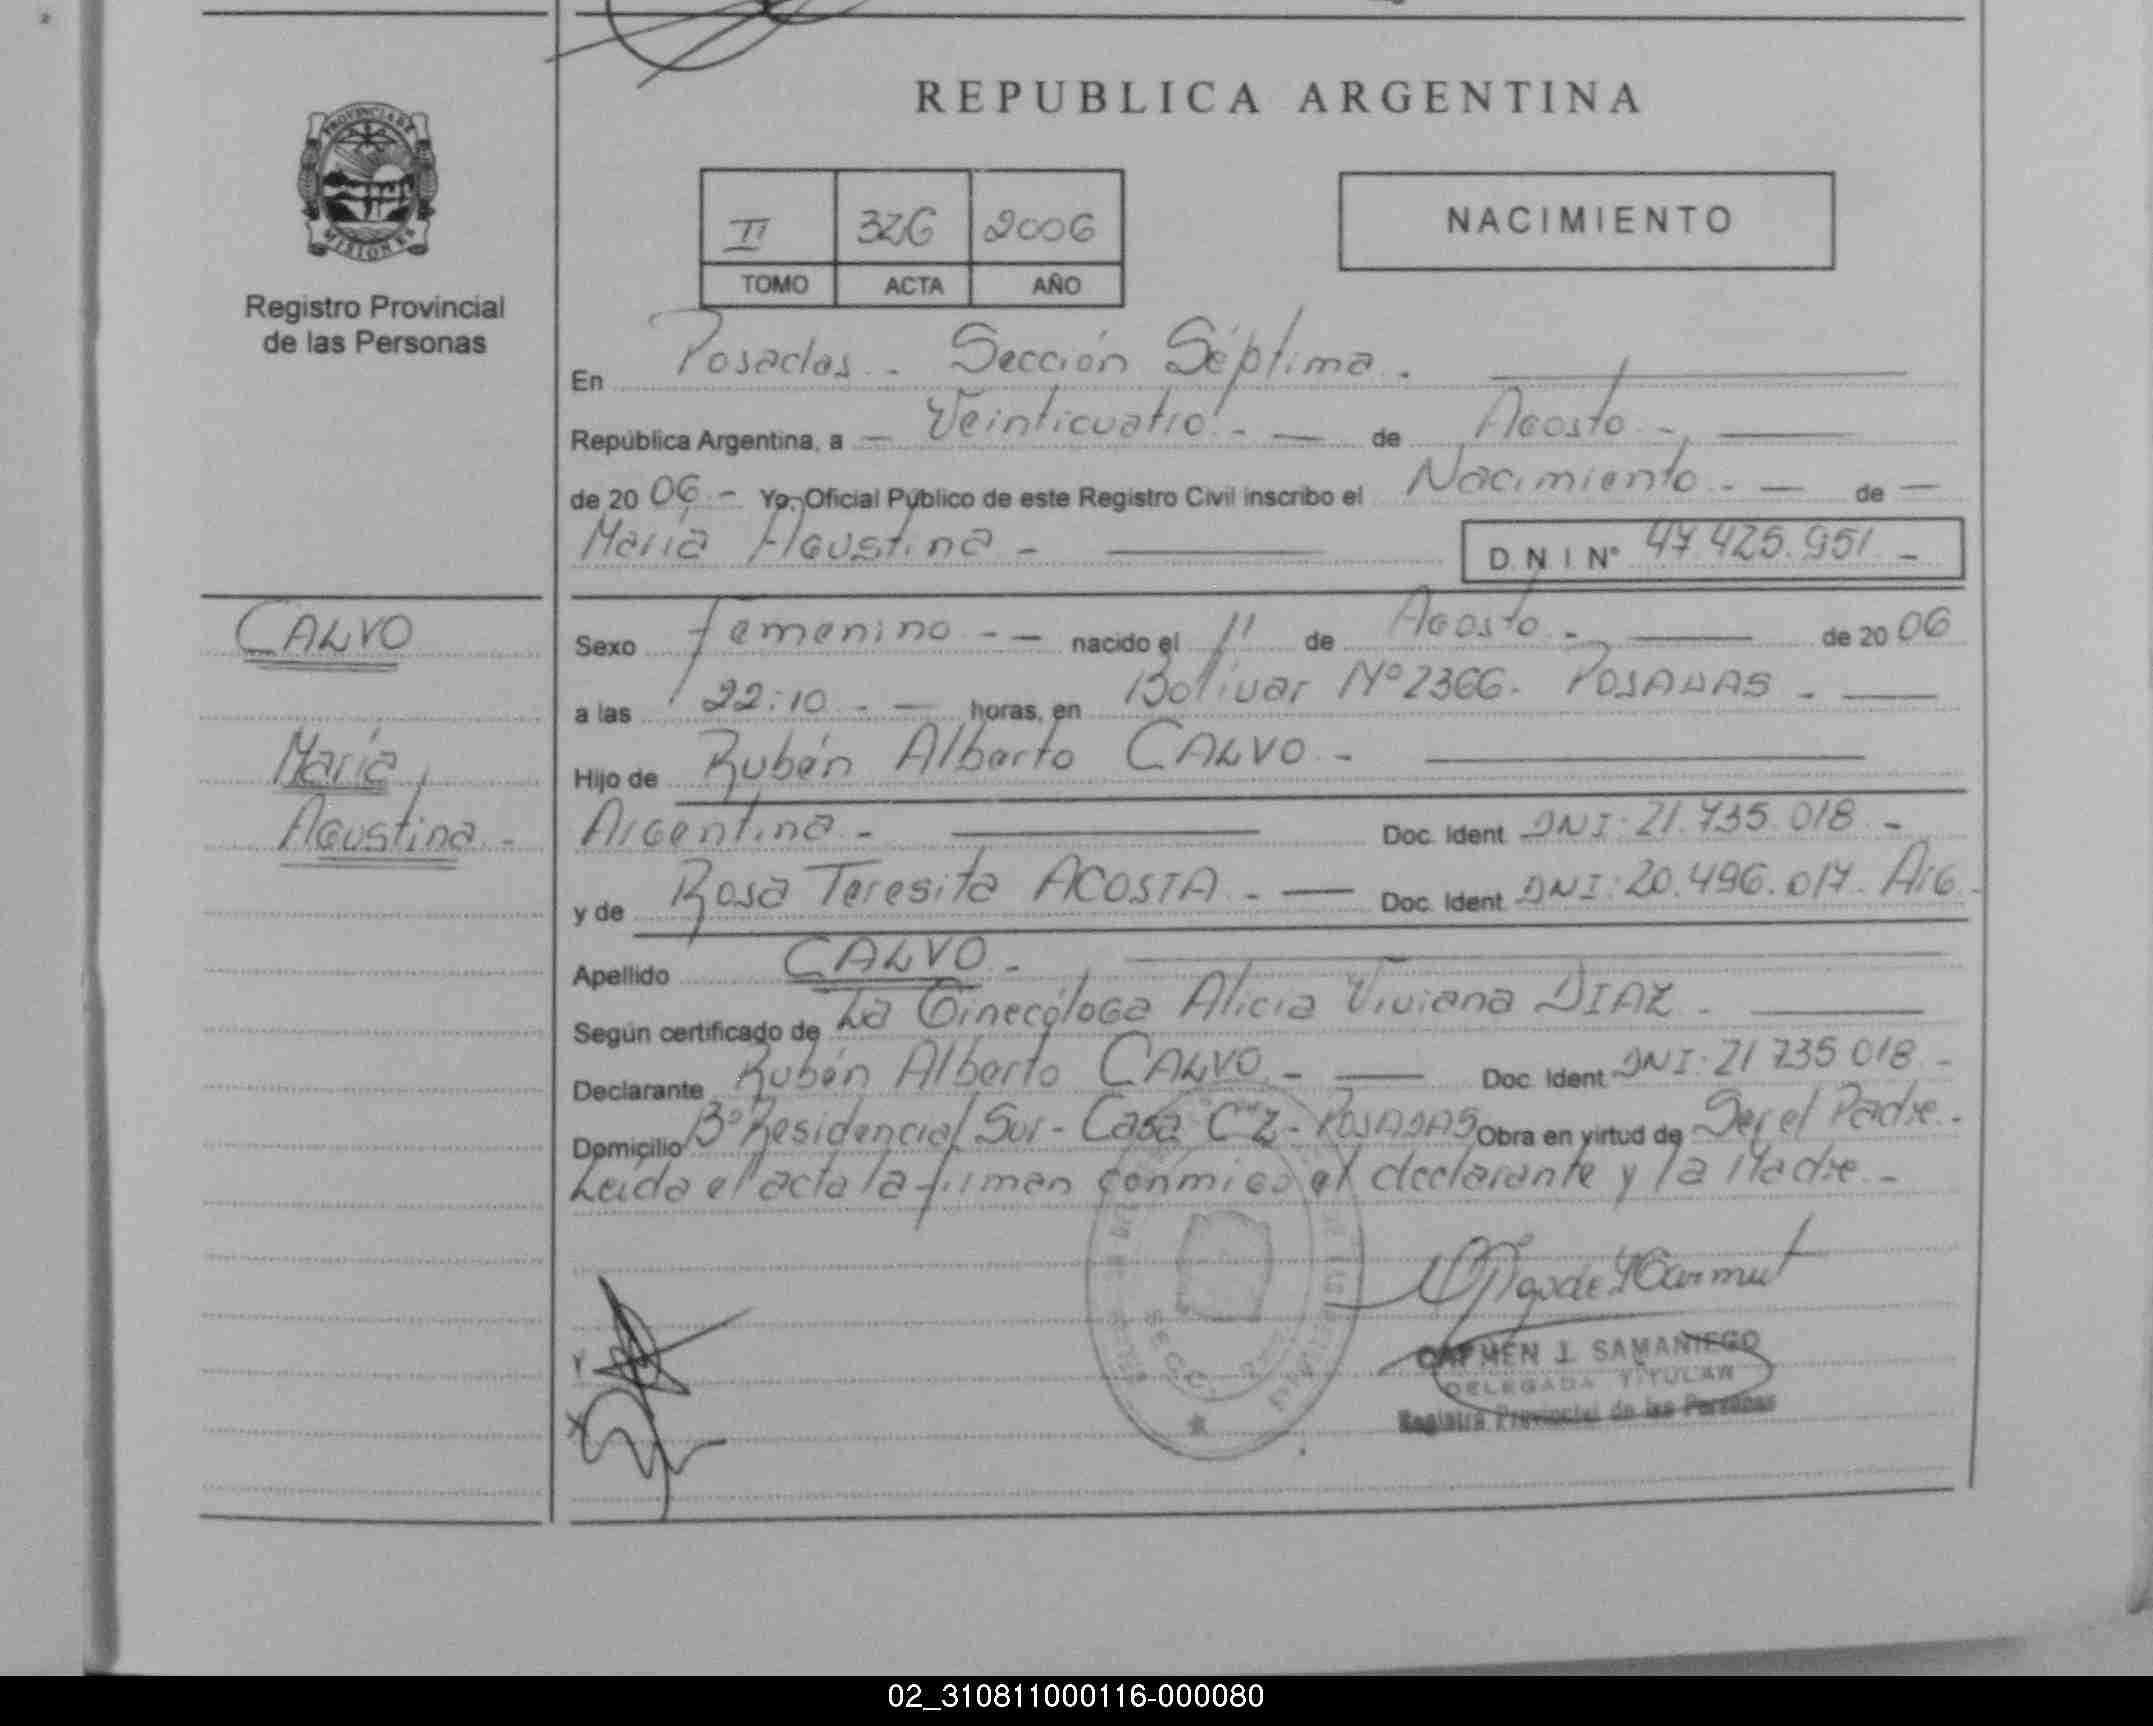 REPUBLICA ARGENTINA
PROVINCIA DE
MISIONES
Registro Provincial
de las Personas
II 326 2006
TOMO ACTA AÑO
NACIMIENTO
En Posadas.- Sección Séptima.
República Argentina, a — Veinticuatro.- — de Agosto.-
de 20 06.- Yo, Oficial Público de este Registro Civil inscribo el Nacimiento.- — de —
María Agustina - D.N.I Nº 47.425.951.-
CALVO
María
Agustina.-
Sexo Femenino.- — nacido el 11 de Agosto.- de 20 06
a las 22:10.- — horas, en Bolivar Nº 2366. POSADAS.-
Hijo de Rubén Alberto CALVO.-
Argentina.- Doc. Ident. DNI: 21.735.018.-
y de Rosa Teresita ACOSTA.- — Doc. Ident. DNI: 20.496.017. Arg.-
Apellido CALVO.-
Según certificado de La Ginecóloga Alicia Viviana DIAZ.-
Declarante Rubén Alberto CALVO.- — Doc. Ident. DNI: 21.735.018.-
Domicilio Bº Residencial Sur - Casa C"Z - POSADAS Obra en virtud de Ser el Padre.-
Leída el acta la firman conmigo el declarante y la Madre.-
CARMEN J. SAMANIEGO
DELEGADA TITULAR
Registro Provincial de las Personas
02_310811000116-000080